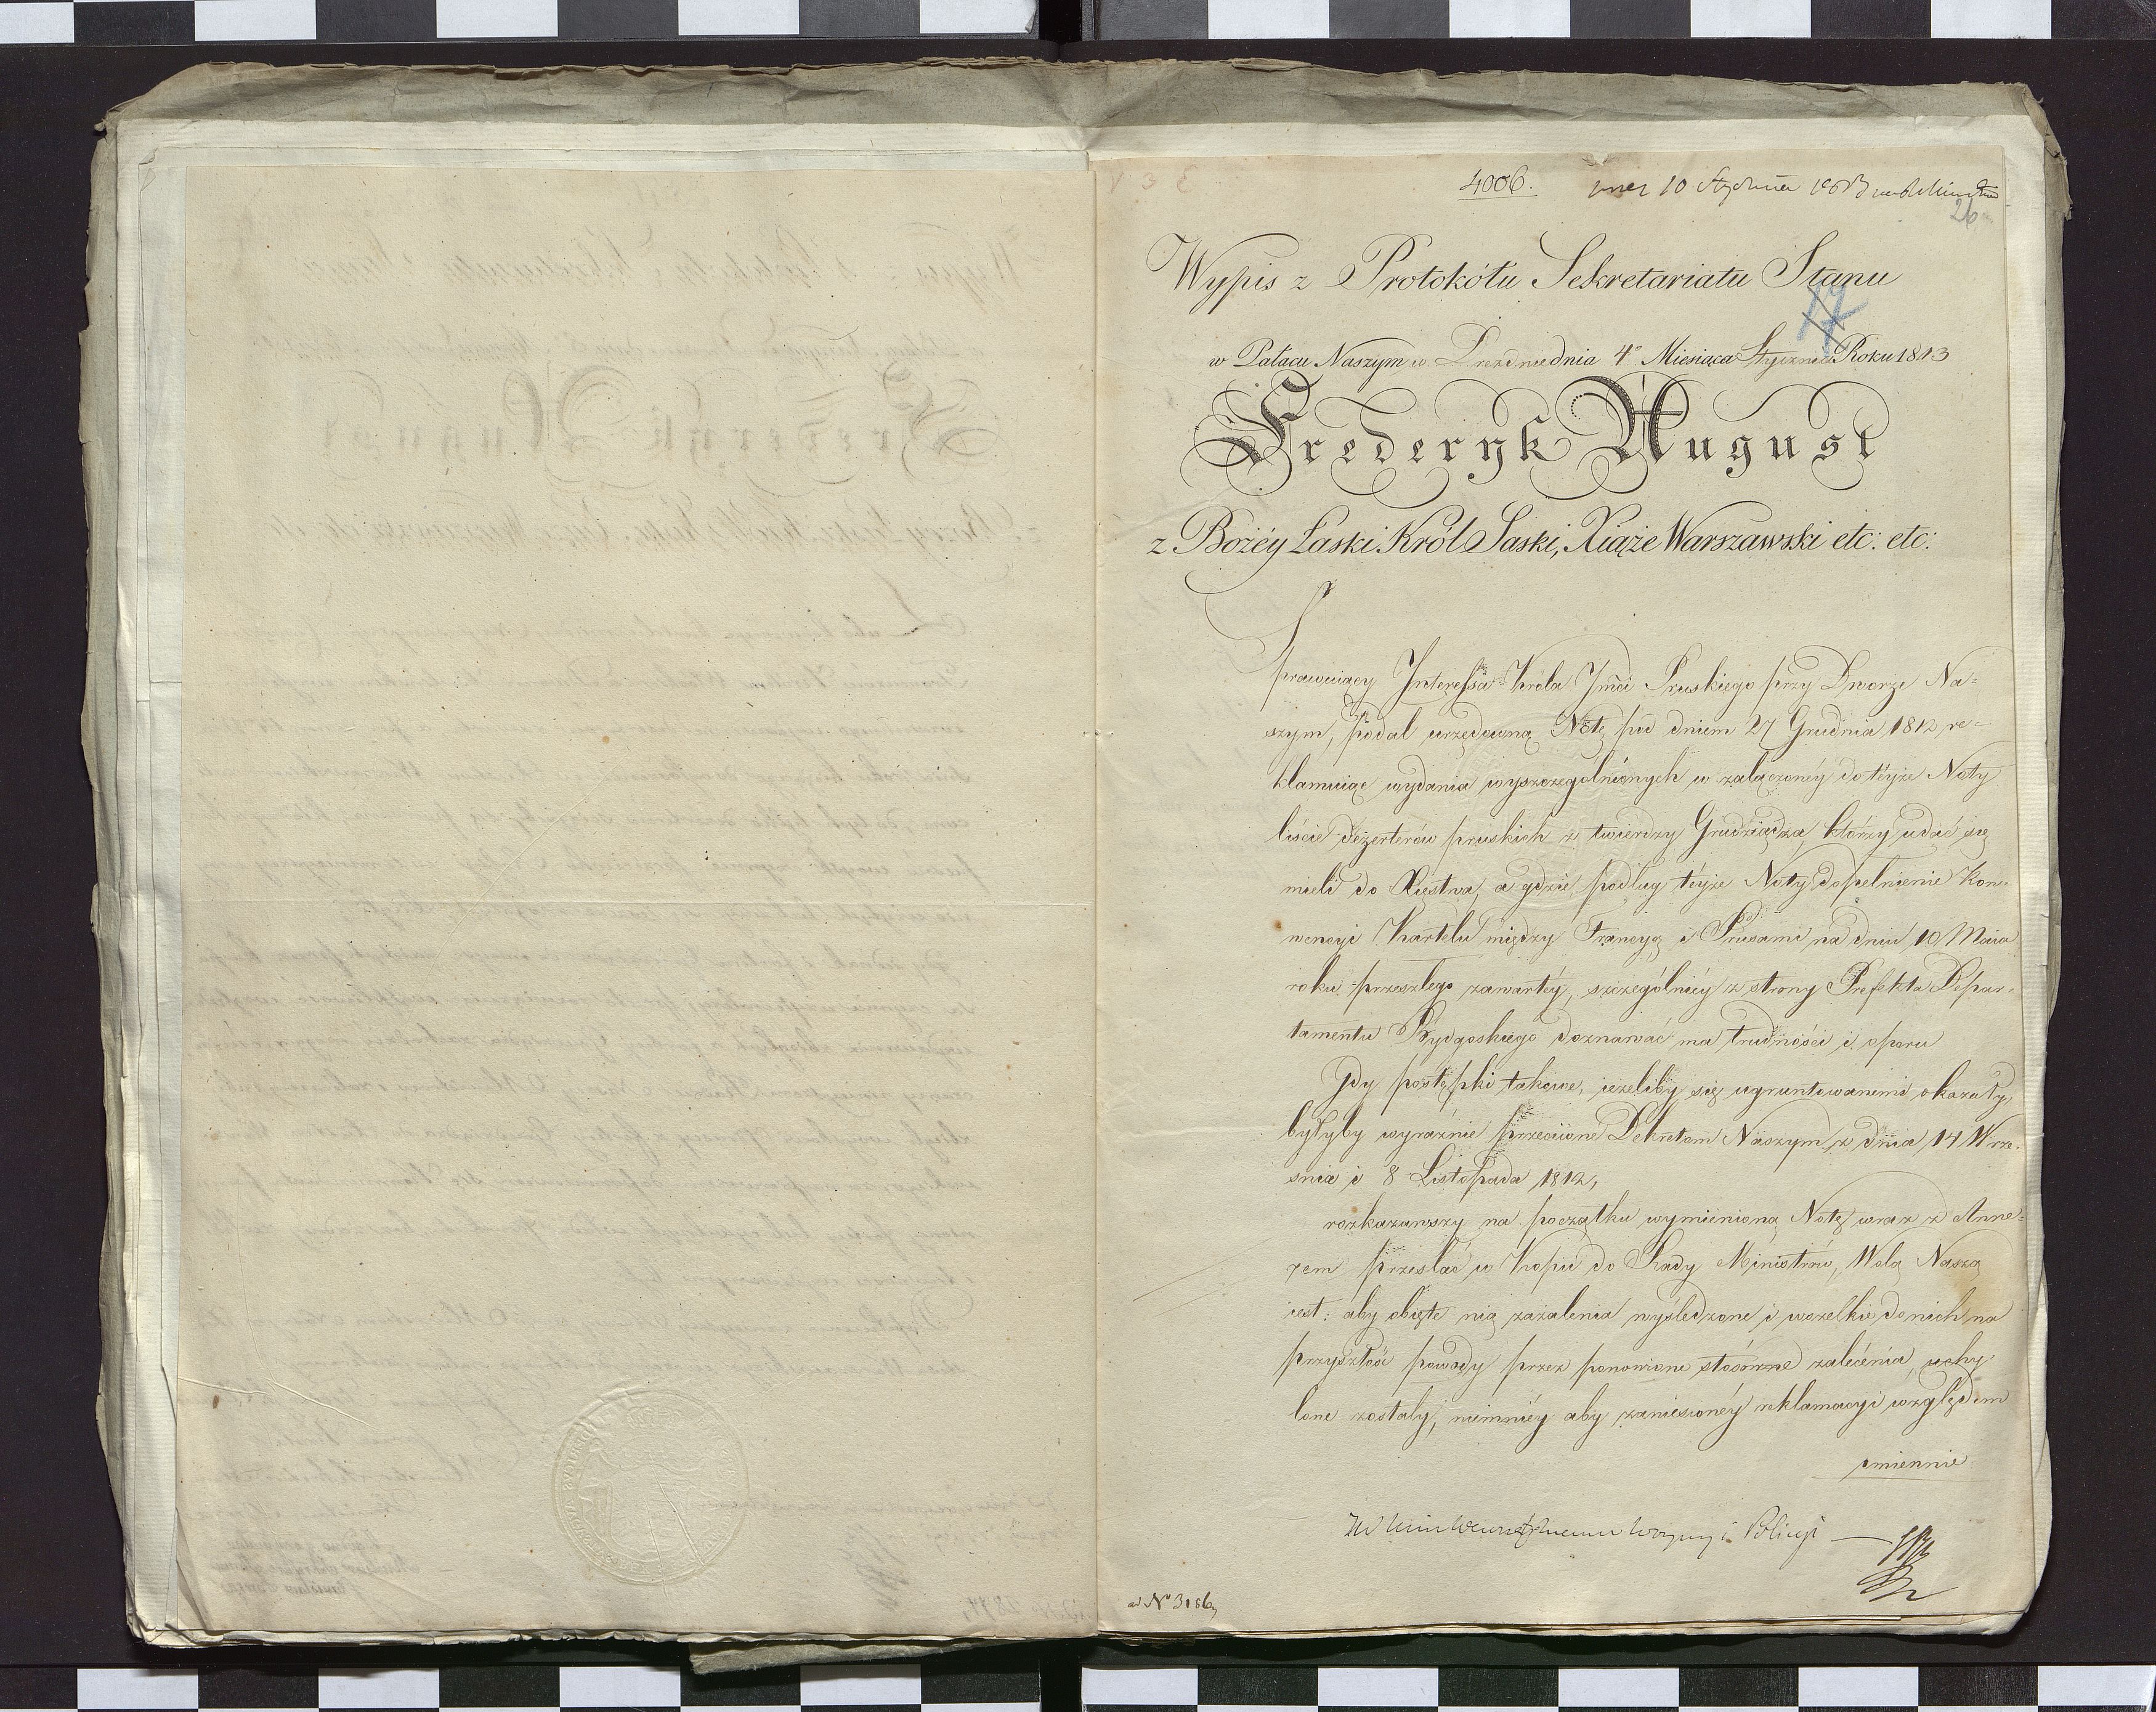 4006.
10 Stycznia
26
Wypis z Protokółu Sekretariatu Stanu
17
w Pałacu Naszym w Dreznie dnia 4° Miesiąca Stycznia Roku 1813
Frederyk August
z Bożéy Łaski Król Saski, Xiąże Warszawski etc: etc:
Sprawuiący Interessa Króla Jmći Pruskiego przy Dworze Na=
szym, podał urzędową Notę pod dniem 27 Grudnia 1812, re=
klamuiąc wydania wyszczególnionych w załączonéy do téyże Noty
liście dezerterów pruskich z twierdzy Grudziądza, którzy udać się
mieli do Xięstwa, a gdzie podług téyże Noty dopełnienie Kon=
wencyi Kartelu między Francyą i Prusami na dniu 10 Maia
roku przeszłego zawartéy, szczególniéy z strony Prefekta Depar=
tamentu Bydgoskiego doznawać ma trudności i oporu
Gdy postępki takowe, ieżeliby się ugruntowanemi okazały,
byłyby wyraźnie przeciwne Dekretom Naszym z dnia 14 Wrze=
snia i 8 Listopada 1812,
rozkazawszy na początku wymienioną Notę wraz z Anne=
xem przesłać w Kopii do Rady Ministrów, Wolą Naszą
iest: aby obięte nią zażalenia wyśledzone i wszelkie do nich na
przyszłość powody przez ponowione stósowne zalecenia, uchy
lone zostały, niemniéy aby zaniesionéy reklamacyi względem
imiennie
i Policyi
ad N° 3186